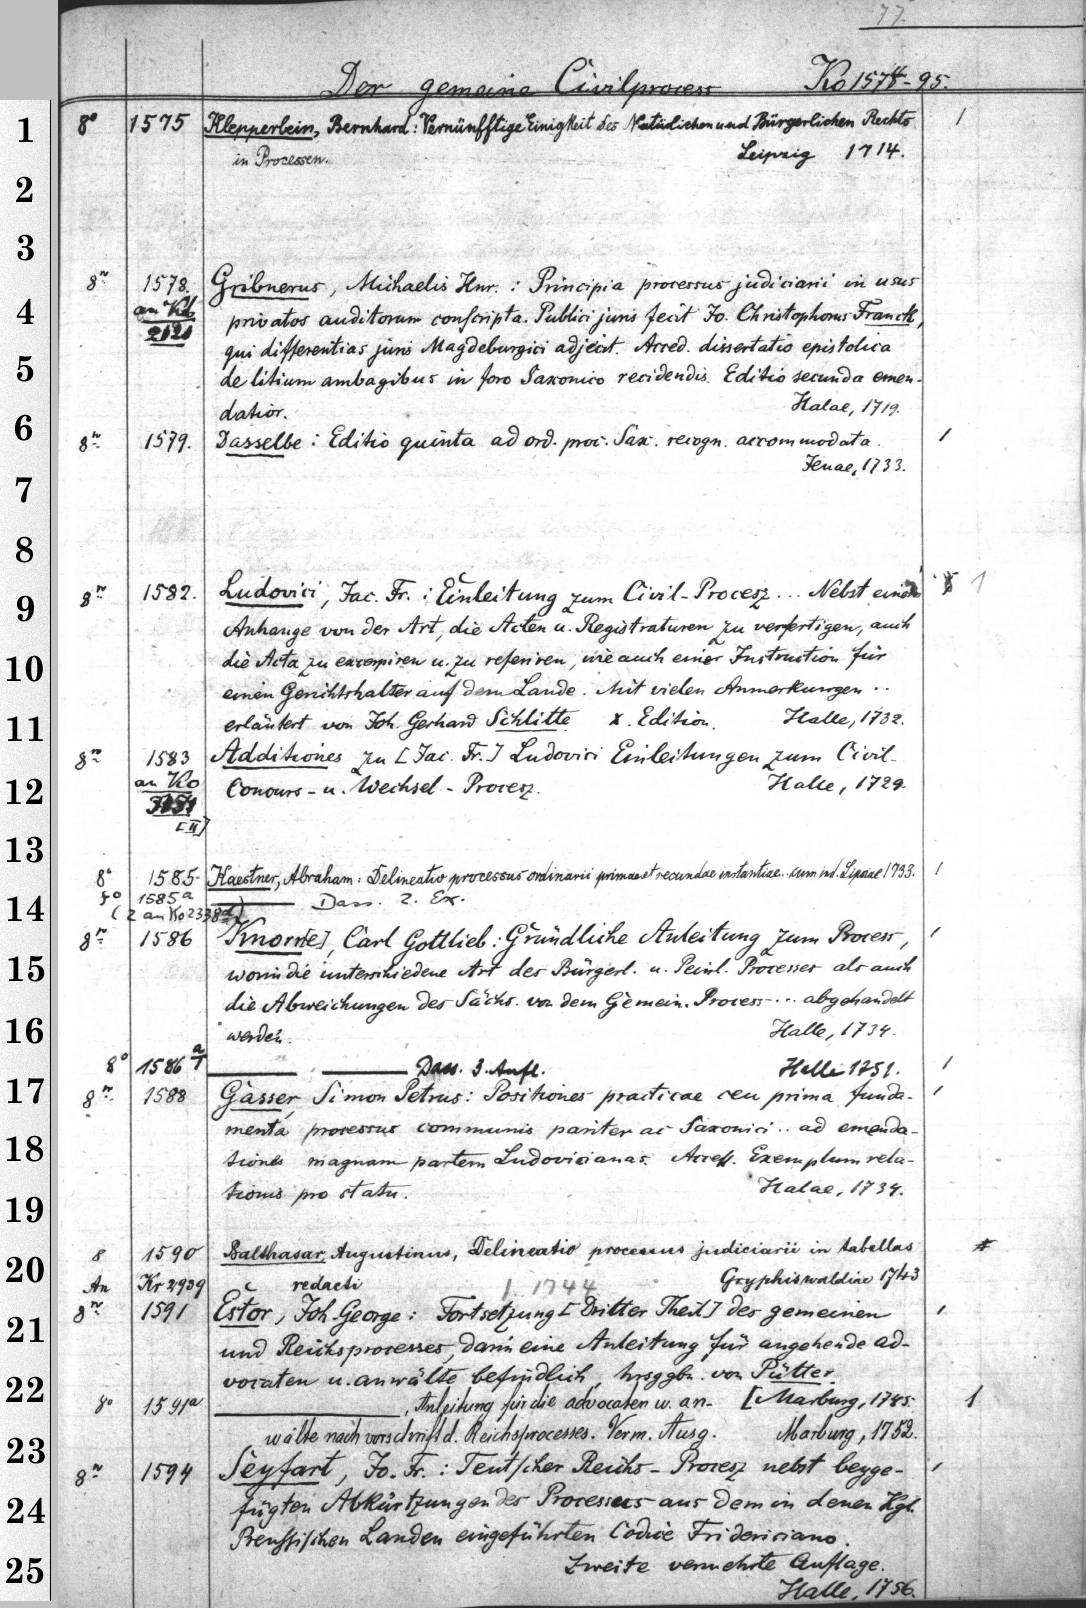 77.
Der gemeine Civilprocess Ko 1574-95.
1
8° 1575 Klepperbein, Bernhard: Vernünfftige Einigkeit des Natürlichen und Bürgerlichen Rechts 1
in Processen. Leipzig 1714.
2
3
8° 1578. Gribnerus, Michaelis Hnr.: Principia processus judiciarii in usus
4
an Kb privatos auditorum conscripta. Publici juris fecit Jo. Christophorus Franck,
2121 qui differentias juris Magdeburgici adjecit. Acced. dissertatio epistolica
5
de litium ambagibus in foro Saxonico recidendis. Editio secunda emen-
datior. Halae, 1719.
6
8° 1579. Dasselbe: Editio quinta ad ord. proc. Sax. recogn. accommodata. 1
Jenae, 1733.
7
8
8° 1582. Ludovici, Jac. Fr.: Einleitung zum Civil-Procesz... Nebst einem 1
9
Anhange von der Art, die Acten u. Registraturen zu verfertigen, auch
10
die Acta zu excerpiren u. zu referiren, wie auch einer Instruction für
einen Gerichtshalter auf dem Lande. Mit vielen Anmerkungen..
11
erläutert von Joh. Gerhard Schlitte X. Edition. Halle, 1732.
8° 1583 Additiones zu [Jac. Fr.] Ludovici Einleitungen zum Civil-
12
an Ko Concurs- u. Wechsel-Procesz. Halle, 1729.
[II]
13
8° 1585 Kaestner, Abraham: Delineatio processus ordinarii primae et secundae instantiae.. cum ind. Lipsiae 1733. 1
14
8° 1585a Dass. 2. Ex.
(2 an Ko 2338d)
8° 1586 Knorr[e], Carl Gottlieb: Gründliche Anleitung zum Process, 1
15
worin die unterschiedene Art des Bürgerl. u. Peinl. Processes als auch
die Abweichungen des Sächs. von dem Gemein. Process... abgehandelt
16
werden. Halle, 1734.
8° 1586 a/1 Dass. 3. Aufl. Halle 1751. 1
17
8° 1588 Gasser, Simon Petrus: Positiones practicae ceu prima funda- 1
menta processus communis pariter ac Saxonici.. ad emenda-
18
tiones magnam partem Ludovicianas. Access. Exemplum rela-
tionis pro statu. Halae, 1734.
19
8 1590 Balthasar, Augustinus, Delineatio processus judiciarii in tabellas *
20
An Kr 2939 redacti 1744 Gryphiswaldiae 1743
8° 1591 Estor, Joh. George: Fortsetzung [Dritter Theil] des gemeinen 1
21
und Reichsprocesses, darin eine Anleitung für angehende ad-
22
vocaten u. anwälte befindlich, hrsggbn. von Pütter.
8° 1591a , Anleitung für die advocaten u. an- [Marburg, 1785. 1
23
wälte nach vorschrift d. Reichsprocesses. Verm. Ausg. Marburg, 1752.
8° 1594 Seyfart, Jo. Fr.: Teutscher Reichs-Procesz nebst beyge- 1
24
fügten Abkürtzungen des Processes aus dem in denen Kgl.
Preussischen Landen eingeführten Codice Fridericiano.
25
Zweite vermehrte Auflage.
Halle, 1756.